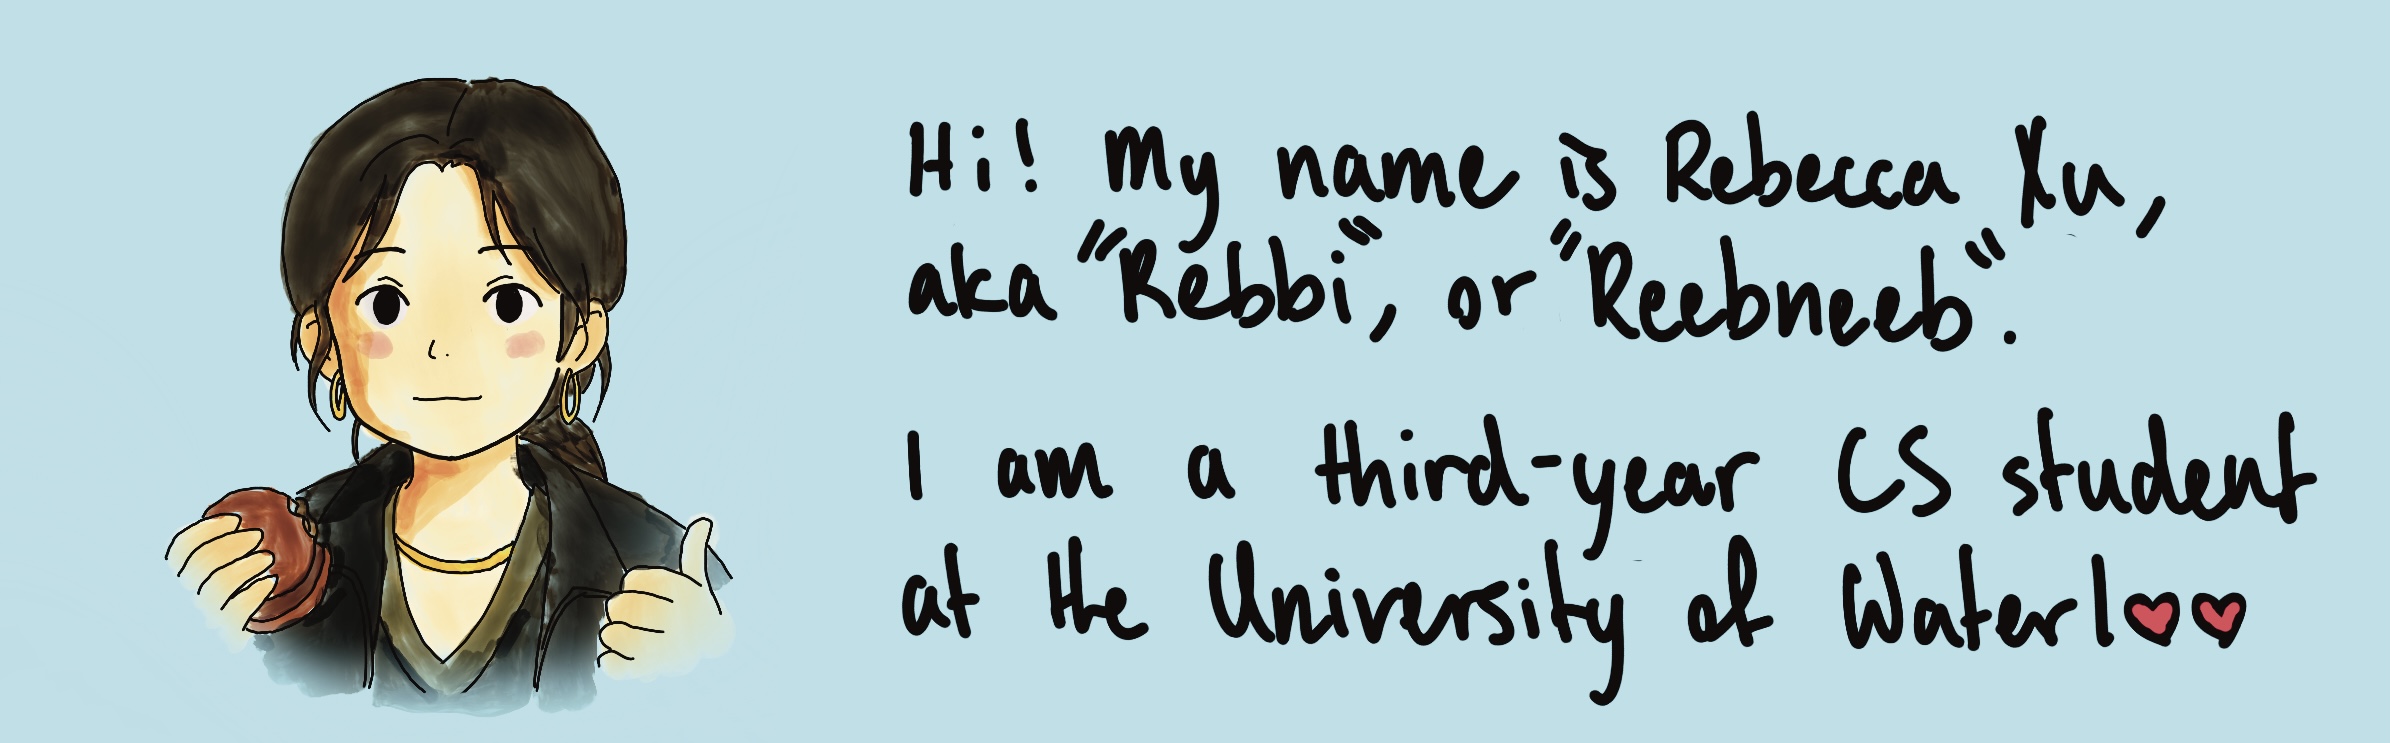 Hi! My name is Rebecca Xu,
aka "Rebbi", or "Reebneeb".
I am a third-year CS student
at the University of Waterl♥♥